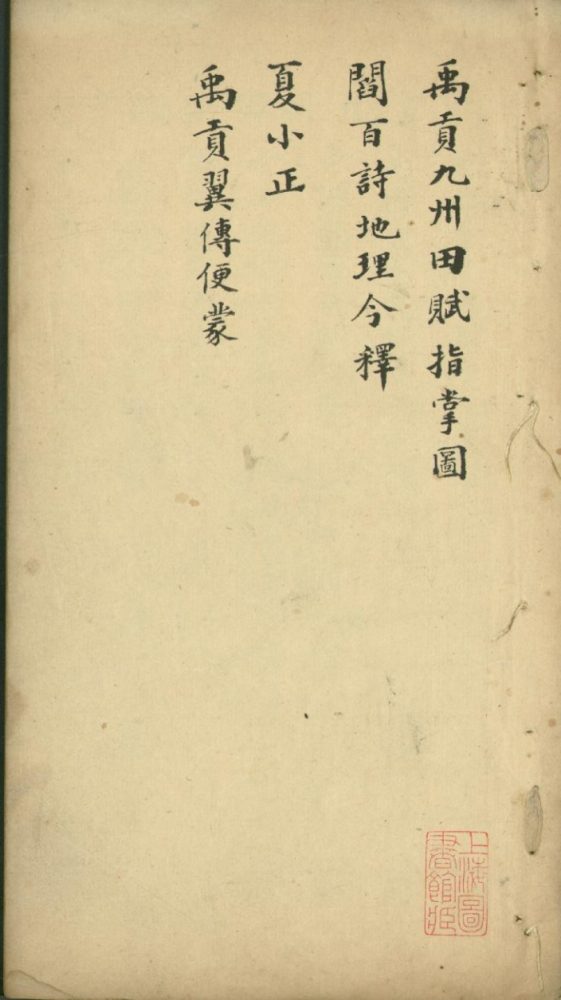 禹貢九州田賦指掌圖
閻百詩地理今釋
夏小正
禹貢翼傳便蒙
上海圖
書館藏